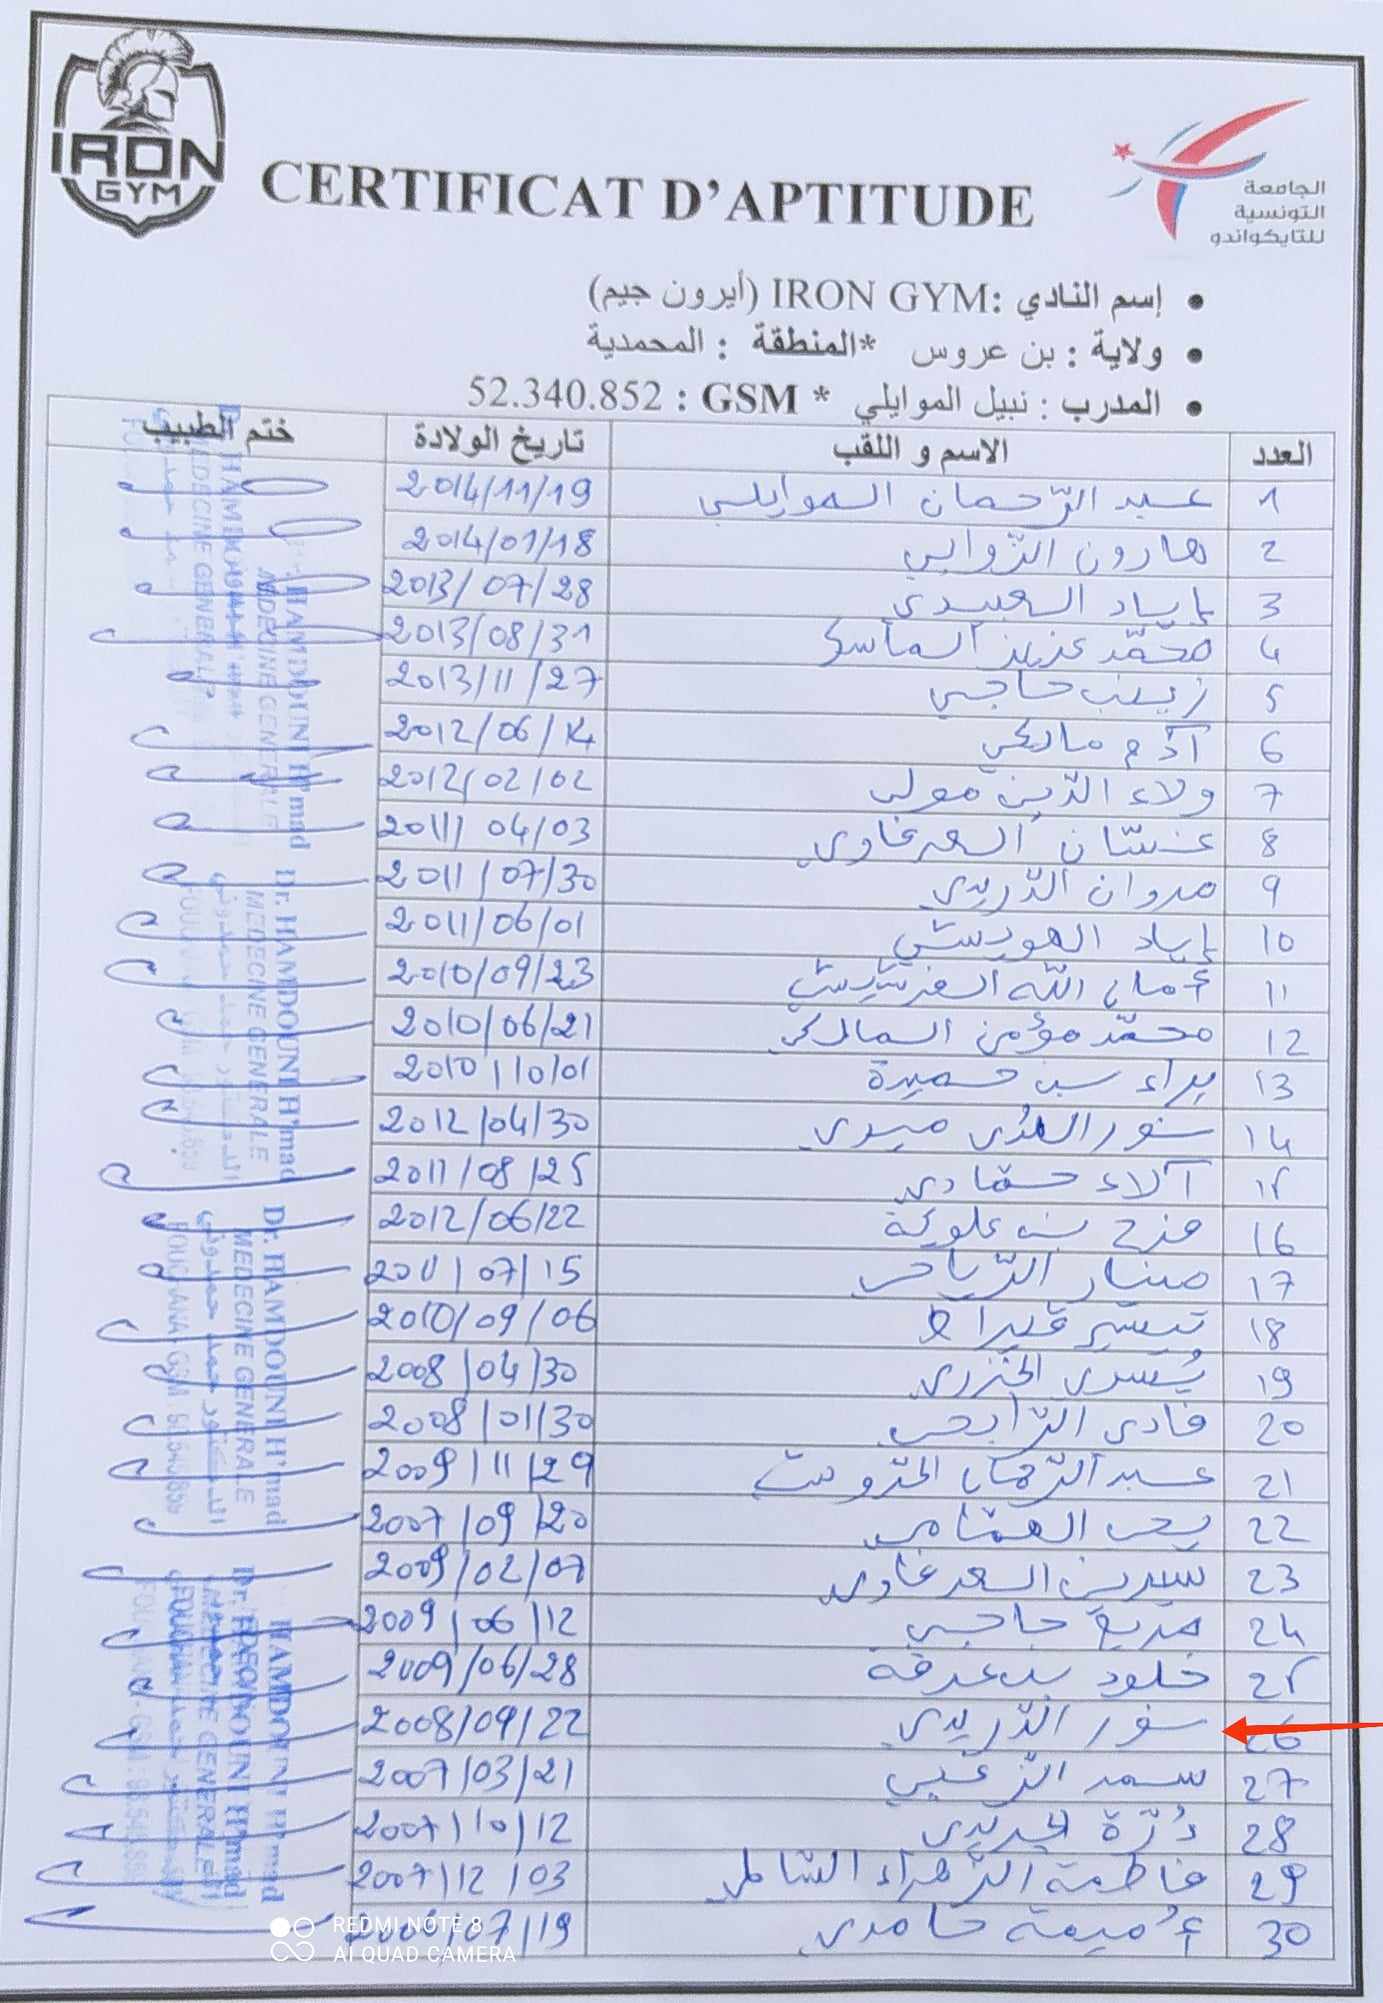 IRON
GYM
CERTIFICAT D'APTITUDE
الجامعة
التونسية
للتايكواندو
• إسم النادي :IRON GYM (أيرون جيم)
• ولاية : بن عروس *المنطقة : المحمدية
• المدرب : نبيل الموايلي * GSM : 52.340.852
العدد الاسم و اللقب تاريخ الولادة ختم الطبيب
1 عبد الرّحمان الموايلي 2014/11/19
2 هارون الزّوابي 2014/01/18
3 إياد العبيدي 2013/07/28
4 محمّد عزيز 2013/08/31
5 زينب حاجي 2013/11/27
6 آدم مالكي 2012/06/14
7 ولاء الدّين مولى 2012/02/02
8 غسّان السعرغاوي 2011/04/03
9 مروان الدّريدي 2011/07/30
10 إياد 2011/06/01
11 أمان الله 2010/09/23
12 محمّد مؤمن المالكي 2010/06/21
13 براء بن حميدة 2010/10/01
14 نور الهدى ميدي 2012/04/30
15 آلاء حمّادي 2011/08/25
16 فرح بن علوكة 2012/06/22
17 منار الرّياحي 2011/07/15
18 تيسير قيراط 2010/09/06
19 يُسرى الخزري 2008/04/30
20 فادي الرّابحي 2008/01/30
21 عبد الرّحمان 2009/11/29
22 يحي 2007/09/20
23 سيرين السعرغاوي 2009/02/07
24 مريم حاجي 2009/06/12
25 خلود بن عرفة 2009/06/28
26 نور الدّريدي 2008/09/22
27 سمر الزّغبي 2007/03/21
28 دُرّة الجريدي 2007/10/12
29 فاطمة الزّهراء الشاطر 2007/12/03
30 أُميمة حامدي 07/19
Dr. HAMDOUNI H'mad
MEDECINE GENERALE
الدكتور حمد حمدوني
FOUCHANA - GSM :
REDMI NOTE 8
AI QUAD CAMERA